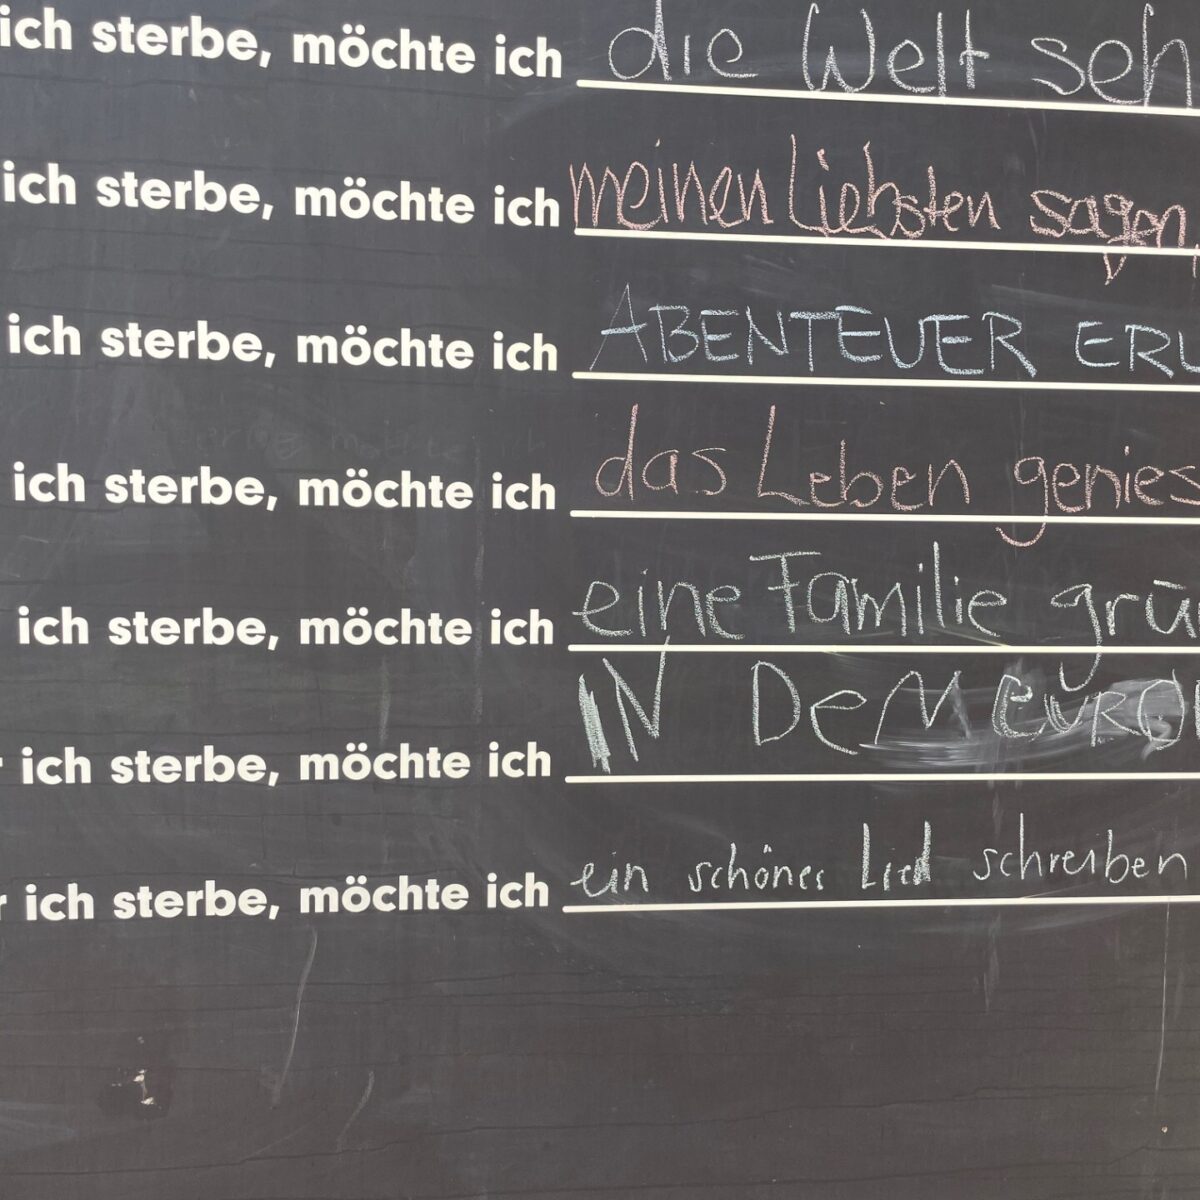 ich sterbe, möchte ich die Welt seh
ich sterbe, möchte ich meinen Liebsten sagen,
ich sterbe, möchte ich ABENTEUER ERL
ich sterbe, möchte ich das Leben genies
ich sterbe, möchte ich eine Familie grü
r ich sterbe, möchte ich IN DEM EURO
r ich sterbe, möchte ich ein schönes Lied schreiben